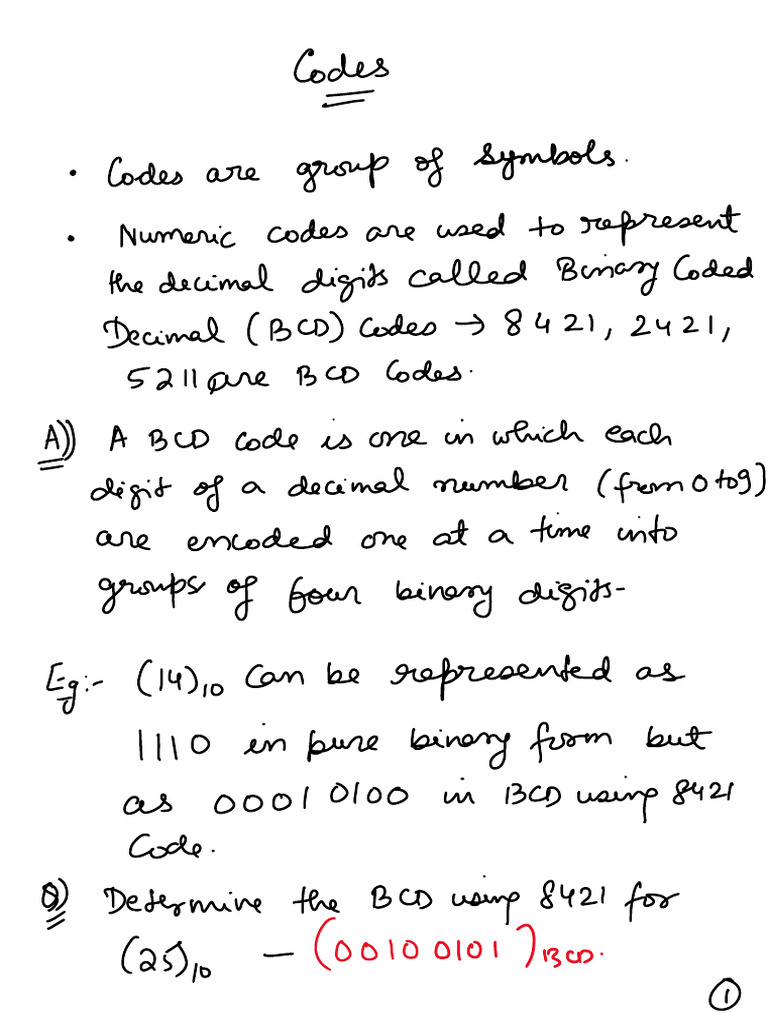 Codes
• Codes are group of symbols.
• Numeric codes are used to represent
the decimal digits called Binary Coded
Decimal (BCD) Codes → 8421, 2421,
5211 are BCD Codes.
A)) A BCD code is one in which each
digit of a decimal number (from 0 to 9)
are encoded one at a time into
groups of four binary digits-
Eg:- (14)₁₀ Can be represented as
1110 in pure binary form but
as 0001 0100 in BCD using 8421
Code.
Q) Determine the BCD using 8421 for
(25)₁₀ – (0010 0101)BCD.
1